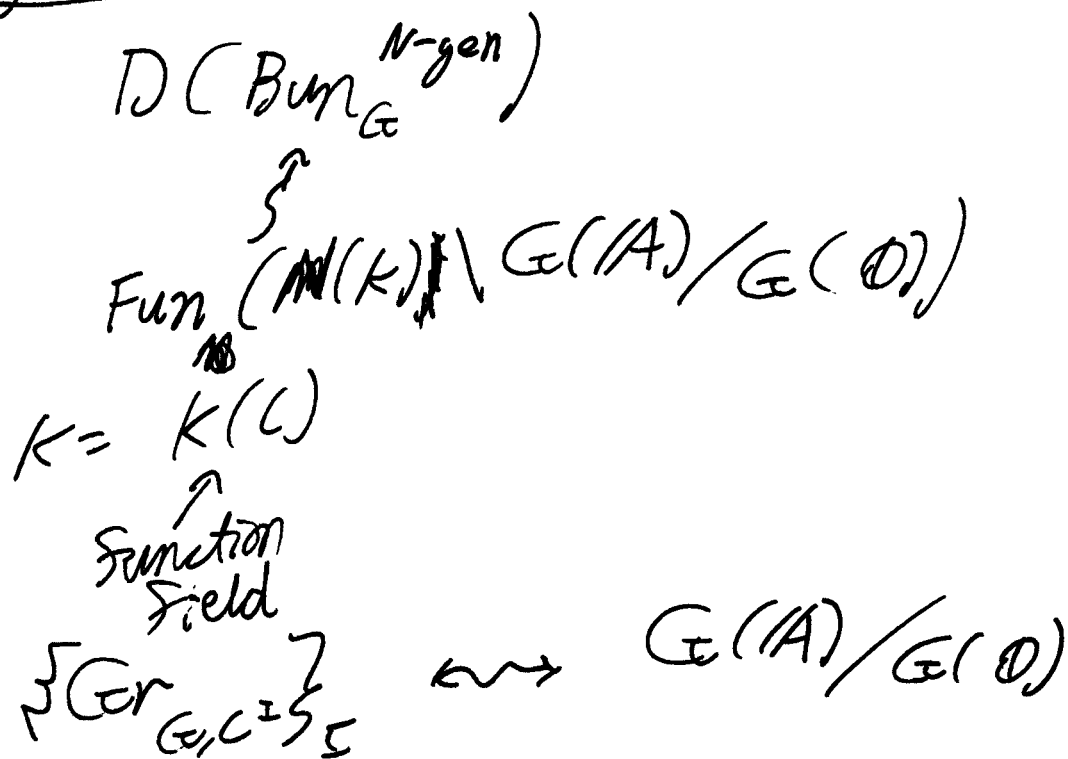 D(Bun_G^{N-gen})
Fun(N(K)\G(𝔸)/G(𝕆))
K = k(C)
function
field
{Gr_{G,C^I}}_I ↭ G(𝔸)/G(𝕆)